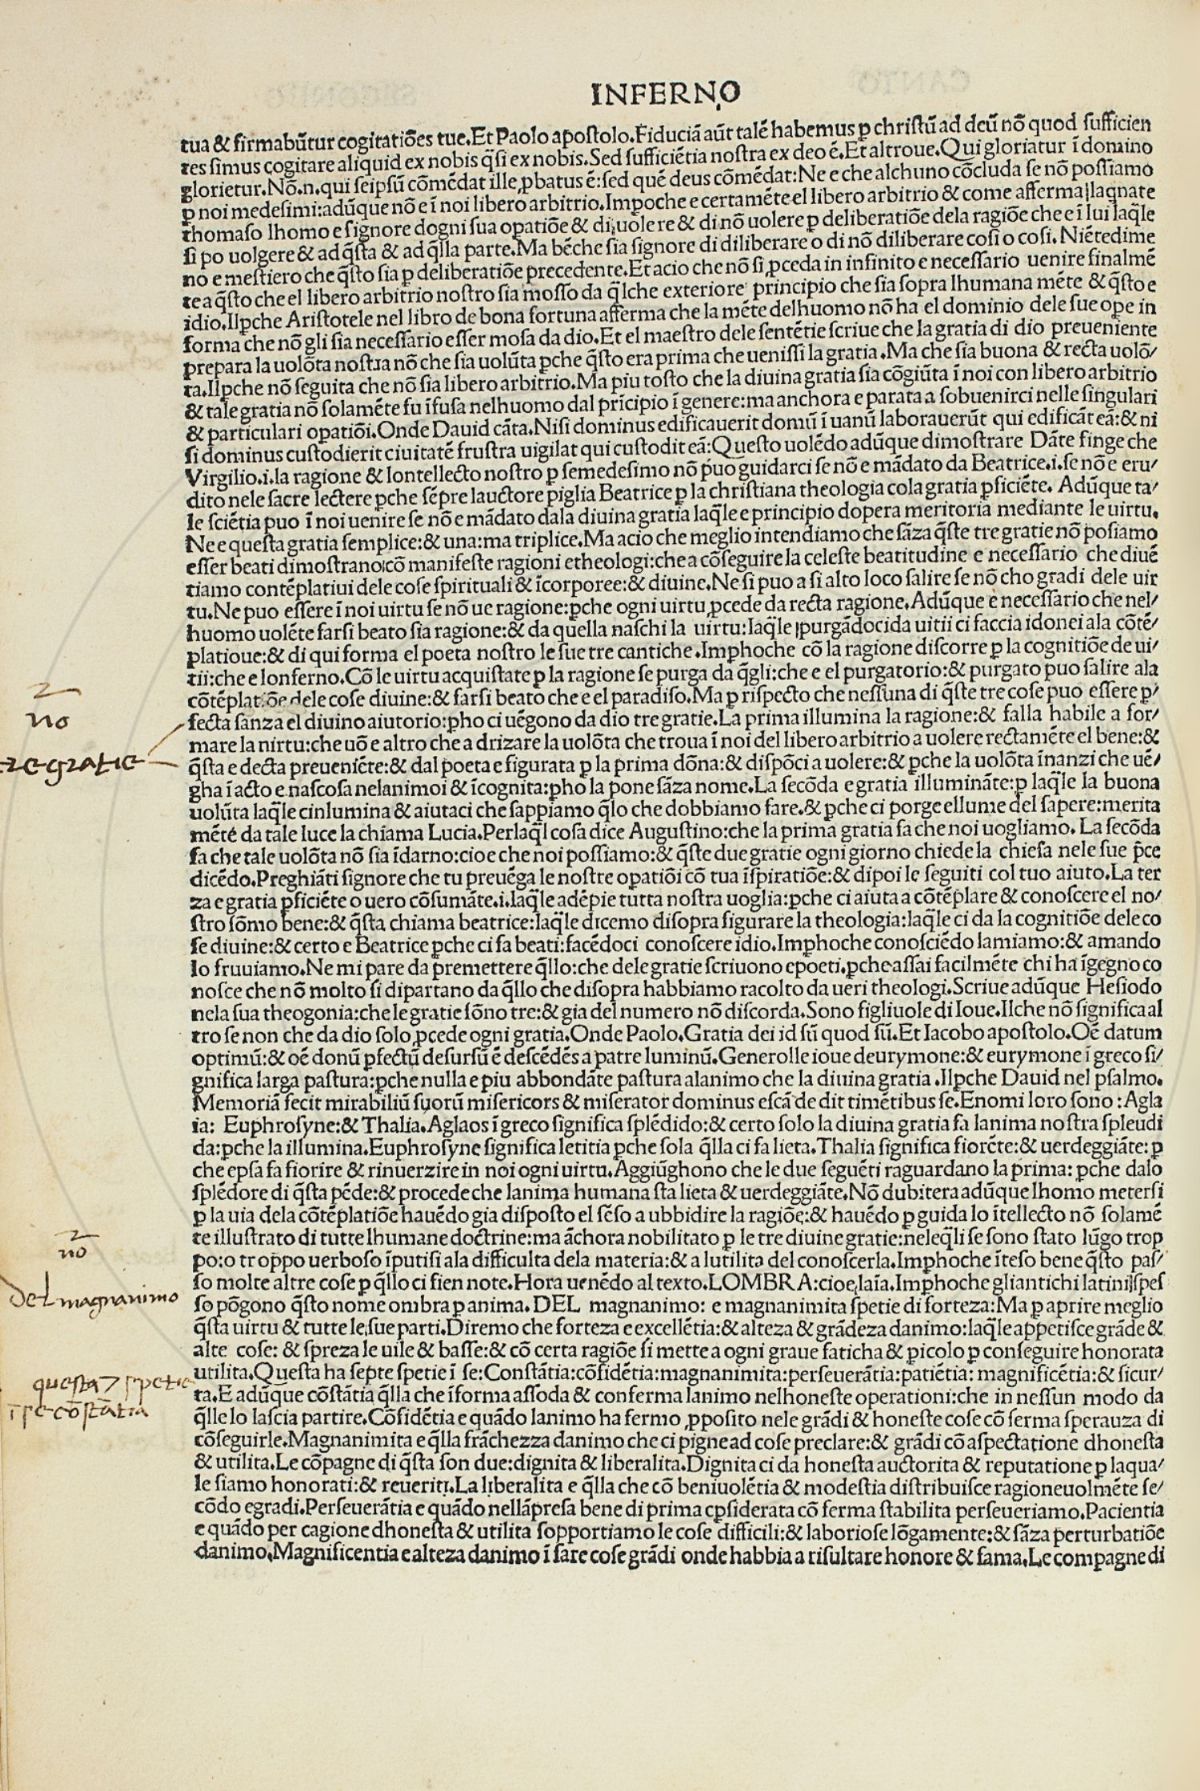 INFERNO
tua & firmabūtur cogitatiōes tue.Et Paolo apostolo.Fiduciā aūt talē habemus p christū ad deū nō quod sufficien
tes simus cogitare aliquid ex nobis q̄si ex nobis.Sed sufficiētia nostra ex deo ē.Et altroue.Qui gloriatur ī domino
glorietur.Nō.n.qui seipsū cōmēdat ille,pbatus ē:sed quē deus cōmēdat:Ne e che alchuno cōcluda se nō possiamo
p noi medesimi:adūque nō e ī noi libero arbitrio.Impoche e certamēte el libero arbitrio & come afferma laqnate
thomaso lhomo e signore dogni sua opatiōe & di uolere & di nō uolere p deliberatiōe dela ragiōe che e ī lui laq̄le
si po uolgere & ad q̄sta & ad q̄lla parte.Ma bēche sia signore di diliberare o di nō diliberare cosi o cosi.Niētedime
no e mestiero che q̄sto sia p deliberatiōe precedente.Et acio che nō si,pceda in infinito e necessario uenire finalmē
te a q̄sto che el libero arbitrio nostro sia mosso da q̄lche exteriore principio che sia sopra lhumana mēte & q̄sto e
idio.Ilpche Aristotele nel libro de bona fortuna afferma che la mēte delhuomo nō ha el dominio dele sue ope in
forma che nō gli sia necessario esser mosa da dio.Et el maestro dele sentētie scriue che la gratia di dio preueniente
prepara la uolōta nostra nō che sia uolūta pche q̄sto era prima che uenissi la gratia.Ma che sia buona & recta uolō/
ta.Ilpche nō seguita che nō sia libero arbitrio.Ma piu tosto che la diuina gratia sia cōgiūta ī noi con libero arbitrio
& tale gratia nō solamēte fu īfusa nelhuomo dal prīcipio ī genere:ma anchora e parata a sobuenirci nelle singulari
& particulari opatiōi.Onde Dauid cāta.Nisi dominus edificauerit domū ī uanū laborauerūt qui edificāt eā:& ni
si dominus custodierit ciuitatē frustra uigilat qui custodit eā:Questo uolēdo adūque dimostrare Dāte finge che
Virgilio.i.la ragione & lontellecto nostro p semedesimo nō puo guidarci se nō e mādato da Beatrice.i.se nō e eru/
dito nele sacre lectere pche sēpre lauctore piglia Beatrice p la christiana theologia cola gratia pficiēte. Adūque ta/
le sciētia puo ī noi uenire se nō e mādato dala diuina gratia laq̄le e principio dopera meritoria mediante le uirtu.
Ne e questa gratia semplice:& una:ma triplice.Ma acio che meglio intendiamo che sāza q̄ste tre gratie nō posiamo
esser beati dimostrano cō manifeste ragioni etheologi:che a cōseguire la celeste beatitudine e necessario che diuē
tiamo contēplatiui dele cose spirituali & īcorporee:& diuine.Ne si puo a si alto loco salire se nō cho gradi dele uir
tu.Ne puo essere ī noi uirtu se nō ue ragione:pche ogni uirtu,pcede da recta ragione.Adūque e necessario che nel/
huomo uolēte farsi beato sia ragione:& da quella naschi la uirtu:laq̄le purgādoci da uitii ci faccia idonei ala cōtē/
platioue:& di qui forma el poeta nostro le sue tre cantiche.Imphoche cō la ragione discorre p la cognitiōe de ui/
tii:che e lonferno.Cō le uirtu acquistate p la ragione se purga da q̄gli:che e el purgatorio:& purgato puo salire ala
cōtēplat ōe dele cose diuine:& farsi beato che e el paradiso.Ma p rispecto che nessuna di q̄ste tre cose puo essere p/
fecta sanza el diuino aiutorio:pho ci uēgono da dio tre gratie.La prima illumina la ragione:& falla habile a for/
mare la nirtu:che uō e altro che a drizare la uolōta che troua ī noi del libero arbitrio a uolere rectamēte el bene:&
q̄sta e decta preueniēte:& dal poeta e figurata p la prima dōna:& dispōci a uolere:& pche la uolōta īnanzi che uē/
gha ī acto e nascosa nelanimoi & īcognita:pho la pone sāza nome.La secōda e gratia illumināte:p laq̄le la buona
uolūta laq̄le cinlumina & aiutaci che sappiamo q̄lo che dobbiamo fare.& pche ci porge ellume del sapere:merita
mēté da tale luce la chiama Lucia.Perlaq̄l cosa dice Augustino:che la prima gratia fa che noi uogliamo. La secōda
fa che tale uolōta nō sia īdarno:cioe che noi possiamo:& q̄ste due gratie ogni giorno chiede la chiesa nele sue p̄ce
dicēdo.Preghiāti signore che tu preuēga le nostre opatiōi cō tua īspiratiōe:& dipoi le seguiti col tuo aiuto.La ter
za e gratia pficiēte o uero cōsumāte.i.laq̄le adēpie tutta nostra uoglia:pche ci aiuta a cōtēplare & conoscere el no/
stro sōmo bene:& q̄sta chiama beatrice:laq̄le dicemo disopra figurare la theologia:laq̄le ci da la cognitiōe dele co
se diuine:& certo e Beatrice pche ci fa beati:facēdoci conoscere idio.Imphoche conosciēdo lamiamo:& amando
lo fruuiamo.Ne mi pare da p̄remettere q̄llo:che dele gratie scriuono epoeti.pche assai facilmēte chi ha īgegno co
nosce che nō molto si dipartano da q̄llo che disopra habbiamo racolto da ueri theologi.Scriue adūque Hesiodo
nela sua theogonia:che le gratie sōno tre:& gia del numero nō discorda.Sono figliuole di Ioue.Ilche nō significa al
tro se non che da dio solo,pcede ogni gratia.Onde Paolo.Gratia dei id sū quod sū.Et Iacobo apostolo.Oē datum
optimū:& oē donū pfectū desursū ē descēdēs a patre luminū.Generolle ioue deurymone:& eurymone ī greco si/
gnifica larga pastura:pche nulla e piu abbondāte pastura alanimo che la diuina gratia .Ilpche Dauid nel psalmo.
Memoriā fecit mirabiliū suorū misericors & miserator dominus escā de dit timētibus se.Enomi loro sono:Agla
ia: Euphrosyne:& Thalia.Aglaos ī greco significa splēdido:& certo solo la diuina gratia fa lanima nostra spleudi
da:pche la illumina.Euphrosyne significa letitia pche sola q̄lla ci fa lieta.Thalia significa fiorēte:& uerdeggiāte:p
che epsa fa fiorire & rinuerzire in noi ogni uirtu.Aggiūghono che le due seguēti raguardano la prima: pche dalo
splēdore di q̄sta pēde:& procede che lanima humana sta lieta & uerdeggiāte.Nō dubitera adūque lhomo metersi
p la uia dela cōtēplatiōe hauēdo gia disposto el sēso a ubbidire la ragiōe:& hauēdo p guida lo ītellecto nō solamē
te illustrato di tutte lhumane doctrine:ma āchora nobilitato p le tre diuine gratie:neleq̄li se sono stato lūgo trop
po:o troppo uerboso īputisi ala difficulta dela materia:& a lutilita del conoscerla.Imphoche īteso bene q̄sto pas/
so molte altre cose p q̄llo ci fien note.Hora uenēdo al texto.LOMBRA:cioe laīa.Imphoche gliantichi latini spes
so pōgono q̄sto nome ombra p anima. DEL magnanimo: e magnanimita spetie di forteza:Ma p aprire meglio
q̄sta uirtu & tutte le sue parti.Diremo che forteza e excellētia:& alteza & grādeza danimo:laq̄le appetisce grāde &
alte cose: & spreza le uile & basse:& cō certa ragiōe si mette a ogni graue faticha & picolo p conseguire honorata
utilita.Questa ha septe spetie ī se:Constātia:cōfidētia:magnanimita:perseuerātia:patiētia: magnificētia:& sicur/
ta.E adūque cōstātia q̄lla che īforma assoda & conferma lanimo nelhoneste operationi:che in nessun modo da
q̄lle lo lascia partire.Cōfidētia e quādo lanimo ha fermo ,pposito nele grādi & honeste cose cō ferma sperauza di
cōseguirle.Magnanimita e q̄lla frāchezza danimo che ci pigne ad cose preclare:& grādi cō aspectatione dhonesta
& utilita.Le cōpagne di q̄sta son due:dignita & liberalita.Dignita ci da honesta auctorita & reputatione p laqua/
le siamo honorati:& reueriti.La liberalita e q̄lla che cō beniuolētia & modestia distribuisce ragioneuolmēte se/
cōdo egradi.Perseuerātia e quādo nellāpresa bene di prima cpsiderata cō ferma stabilita perseueriamo.Pacientia
e quādo per cagione dhonesta & utilita sopportiamo le cose difficili:& laboriose lōgamente:& sāza perturbatiōe
danimo.Magnificentia e alteza danimo ī fare cose grādi onde habbia a risultare honore & fama.Le compagne di
no
tre gratie
no
Del magnanimo
questa 7 spetie
ī se cōstātia